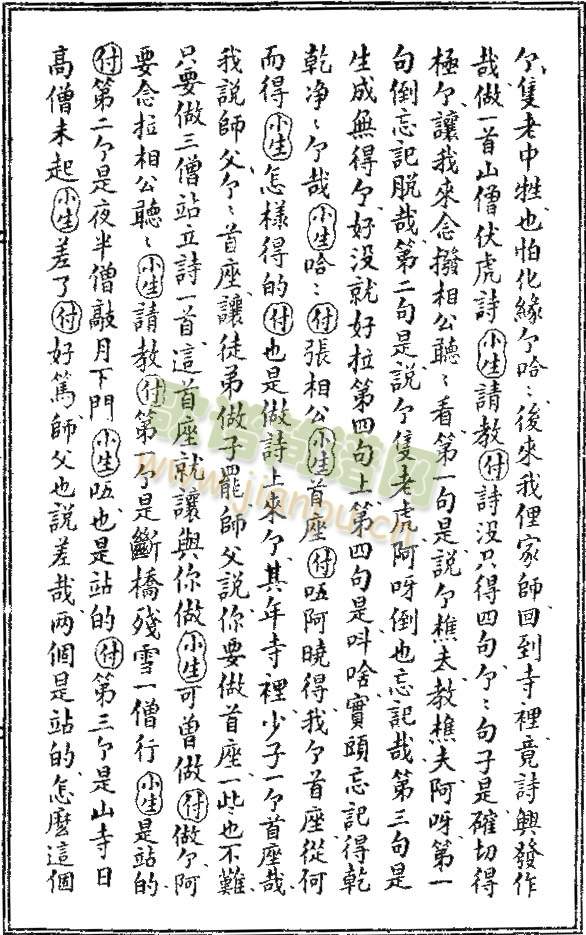 𠆣隻老中牲也怕化緣𠆣哈〻後來我俚家師回到寺裡竟詩興發作
哉做一首山僧伏虎詩小生請教付詩沒只得四句𠆣〻句子是確切得
極𠆣讓我來念撥相公聽〻看第一句是說𠆣樵夫教樵夫阿呀第一
句倒忘記脫哉第二句是說𠆣隻老虎阿呀倒也忘記哉第三句是
生成無得𠆣好沒就好拉第四句上第四句是呌啥實頭忘記得乾
乾净〻𠆣哉小生哈〻付張相公小生首座付唔阿曉得我𠆣首座從何
而得小生怎樣得的付也是做詩上來𠆣其年寺裡少子一𠆣首座哉
我說師父𠆣〻首座讓徒弟做子罷師父說你要做首座一些也不難
只要做三僧站立詩一首這首座就讓與你做小生可曾做付做𠆣阿
要念拉相公聽〻小生請教付第一𠆣是斷橋殘雪一僧行小生是站的
付第二𠆣是夜半僧敲月下門小生唔也是站的付第三𠆣是山寺日
高僧未起小生差了付好篤師父也說差哉两個是站的怎麽這個
歌譜簡譜网
www.jianpu.cn